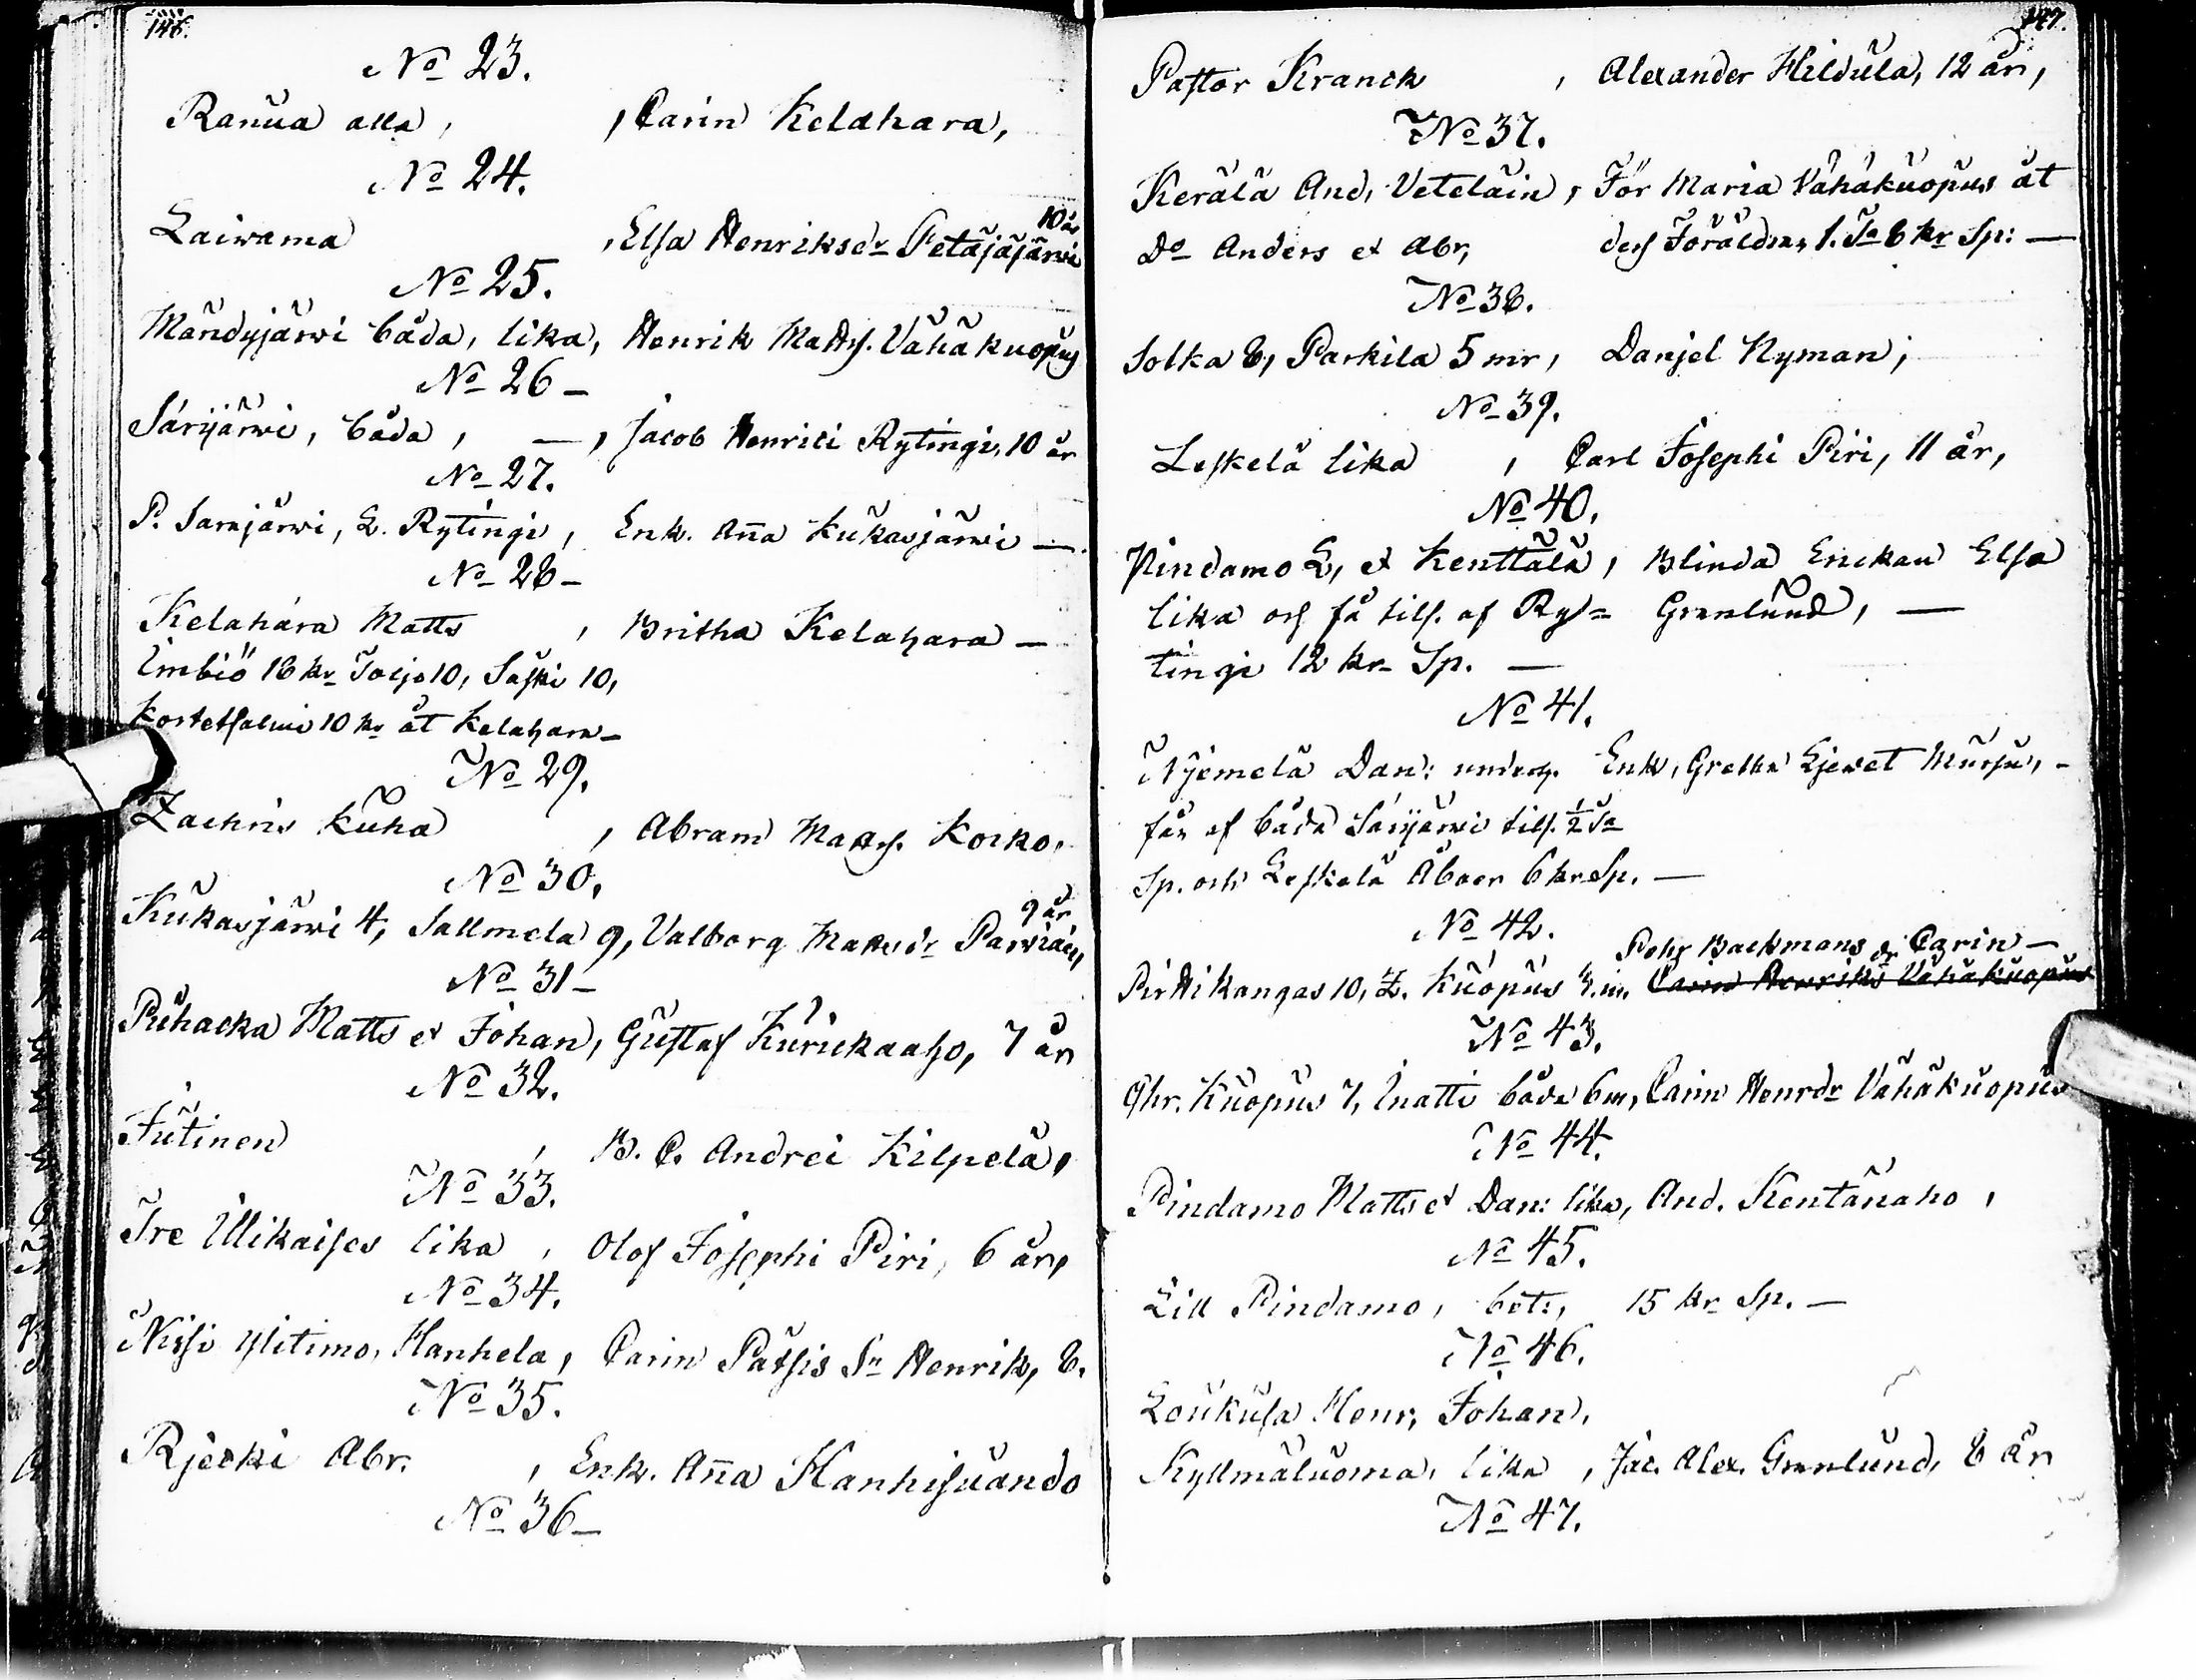 146.
No 23.
Ranua alla, , Carin Kelahara,
No 24.
Laiwama , Elsa Henriksdr Petäjäjärwi 10 år
No 25.
Mändyjärwi båda, lika, Henrik Matts. Vähäkuopus
No 26 –
Särijärwi, båda, — , Jacob Henrici Rytingi, 10 år
No 27.
P. Sarajärwi, L. Rytingi, Enk. Anna Kukasjärwi —
No 28 –
Kelahara Matts , Britha Kelahara —
Imbiö 18 kr Toljo 10, Saski 10,
Kortetsalmi 10 kr åt Kelahara –
No 29.
Zachris Kuha , Abram Matts. Korko.
No 30.
Kukasjärwi 4, Sallmela 9, Valborg Mattsdr Parwiain, 9 år
No 31 –
Puhacka Matts et Johan, Gustaf Kurickaaho, 7 år
No 32.
Jutinen , B. C. Andrei Kilpelä,
No 33.
Tre Ulikaises lika , Olof Josephi Piri, 6 år,
No 34.
Nissi Ylitimo, Hanhela, Carin Pätsis Sn Henrik, 8.
No 35.
Rjecki Abr. , Enk. Anna Hanhisuando
No 36 –
147.
Pastor Kranck , Alexander Hildula, 12 år,
No 37.
Kerälä And, Veteläin, För Maria Vähäkuopus åt
Do Anders et Abr, dess Föräldrar 1. Ta 6 kr Sp: —
No 38.
Solka 8, Parkila 5 mr, Danjel Nyman,
No 39.
Leskelä lika , Carl Josephi Piri, 11 år,
No 40.
Pindamo L, et Kenttälä, Blinda Enckan Elsa
lika och få tills. af Ry= Grenlund, —
tingi 12 kr Sp. —
No 41.
Nyemelä Dan: Enk, Gretha Ljewet Mursu, –
får af båda Särijärwi tills. ½ Ta
Sp. och Leskelä Åboer 6 kr Sp. —
No 42.
Pehr Backmans dr Carin —
Pirttikangas 10, Z. Kuopus 3. m. Carin Henriks Vähäkuopus
No 43.
Chr. Kuopus 7, Inatti både 6 m, Carin Henrdr Vähäkuopus
No 44.
Pindamo Matts et Dan: lika, And. Kentänaho,
No 45.
Lill Pindamo, bet:, 15 kr Sp. —
No 46.
Loukusa Henr, Johan,
Kyllmäluoma, lika , Jac. Alex. Grenlund, 8 år
No 47.